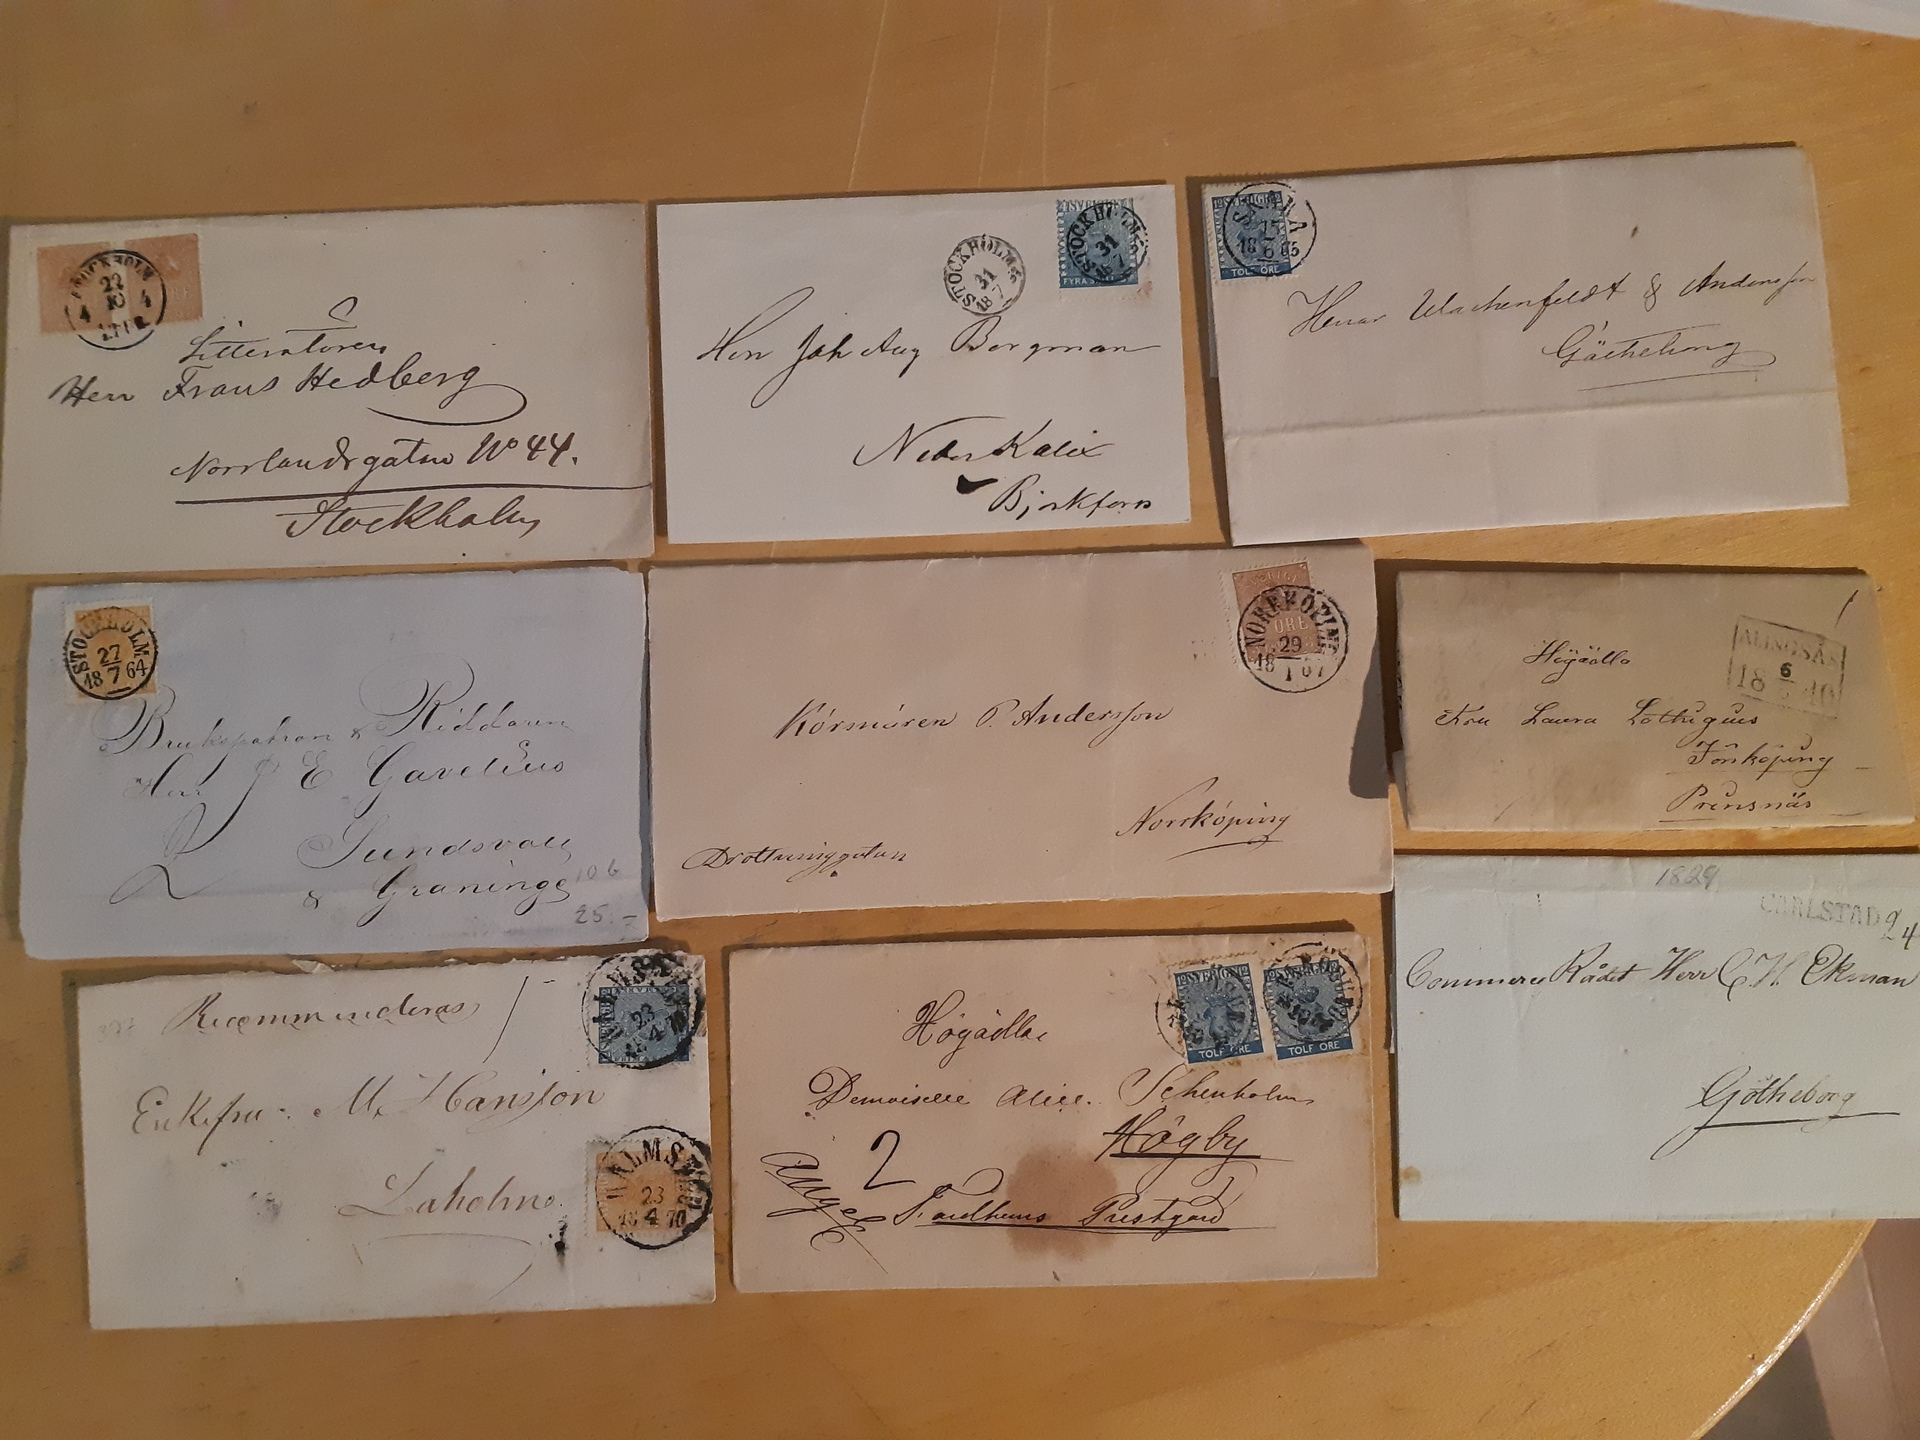 STOCKHOLM
22
4 10 4
Litteratören
Herr Frans Hedberg
Norrlandsgatan No 44.
Stockholm
STOCKHOLM
31
18 7
STOCKHOLM
31
18 7
Herr Joh Aug Bergman
Neder Kalix
Björkfors
SKARA
15
18 6 65
TOLF ÖRE
Herrar Wachenfeldt & Andersson
Götheborg
STOCKHOLM
27
18 7 64
Brukspatron & Riddaren
Herr J E Gavelius
Sundsvall
& Graninge
106
25.-
NORRKÖPING
29
18 1 67
ÖRE
Körsnären P. Andersson
Norrköping
Drottninggatan
ALINGSÅS
6
18 40
Högädla
Fru Laura Lothigius
Jönköping
Prinsnäs
1829
CARLSTAD 9/4
Commerce Rådet Herr C. H. Ekman
Götheborg
HALMSTAD
23
18 4 70
Recommenderas
Enkefru M. Hansson
Laholm
HALMSTAD
23
18 4 70
SVERIGE
TOLF ÖRE
TOLF ÖRE
Högädla
Demoiselle Alice Schenholm
Högby
2
Prestgård